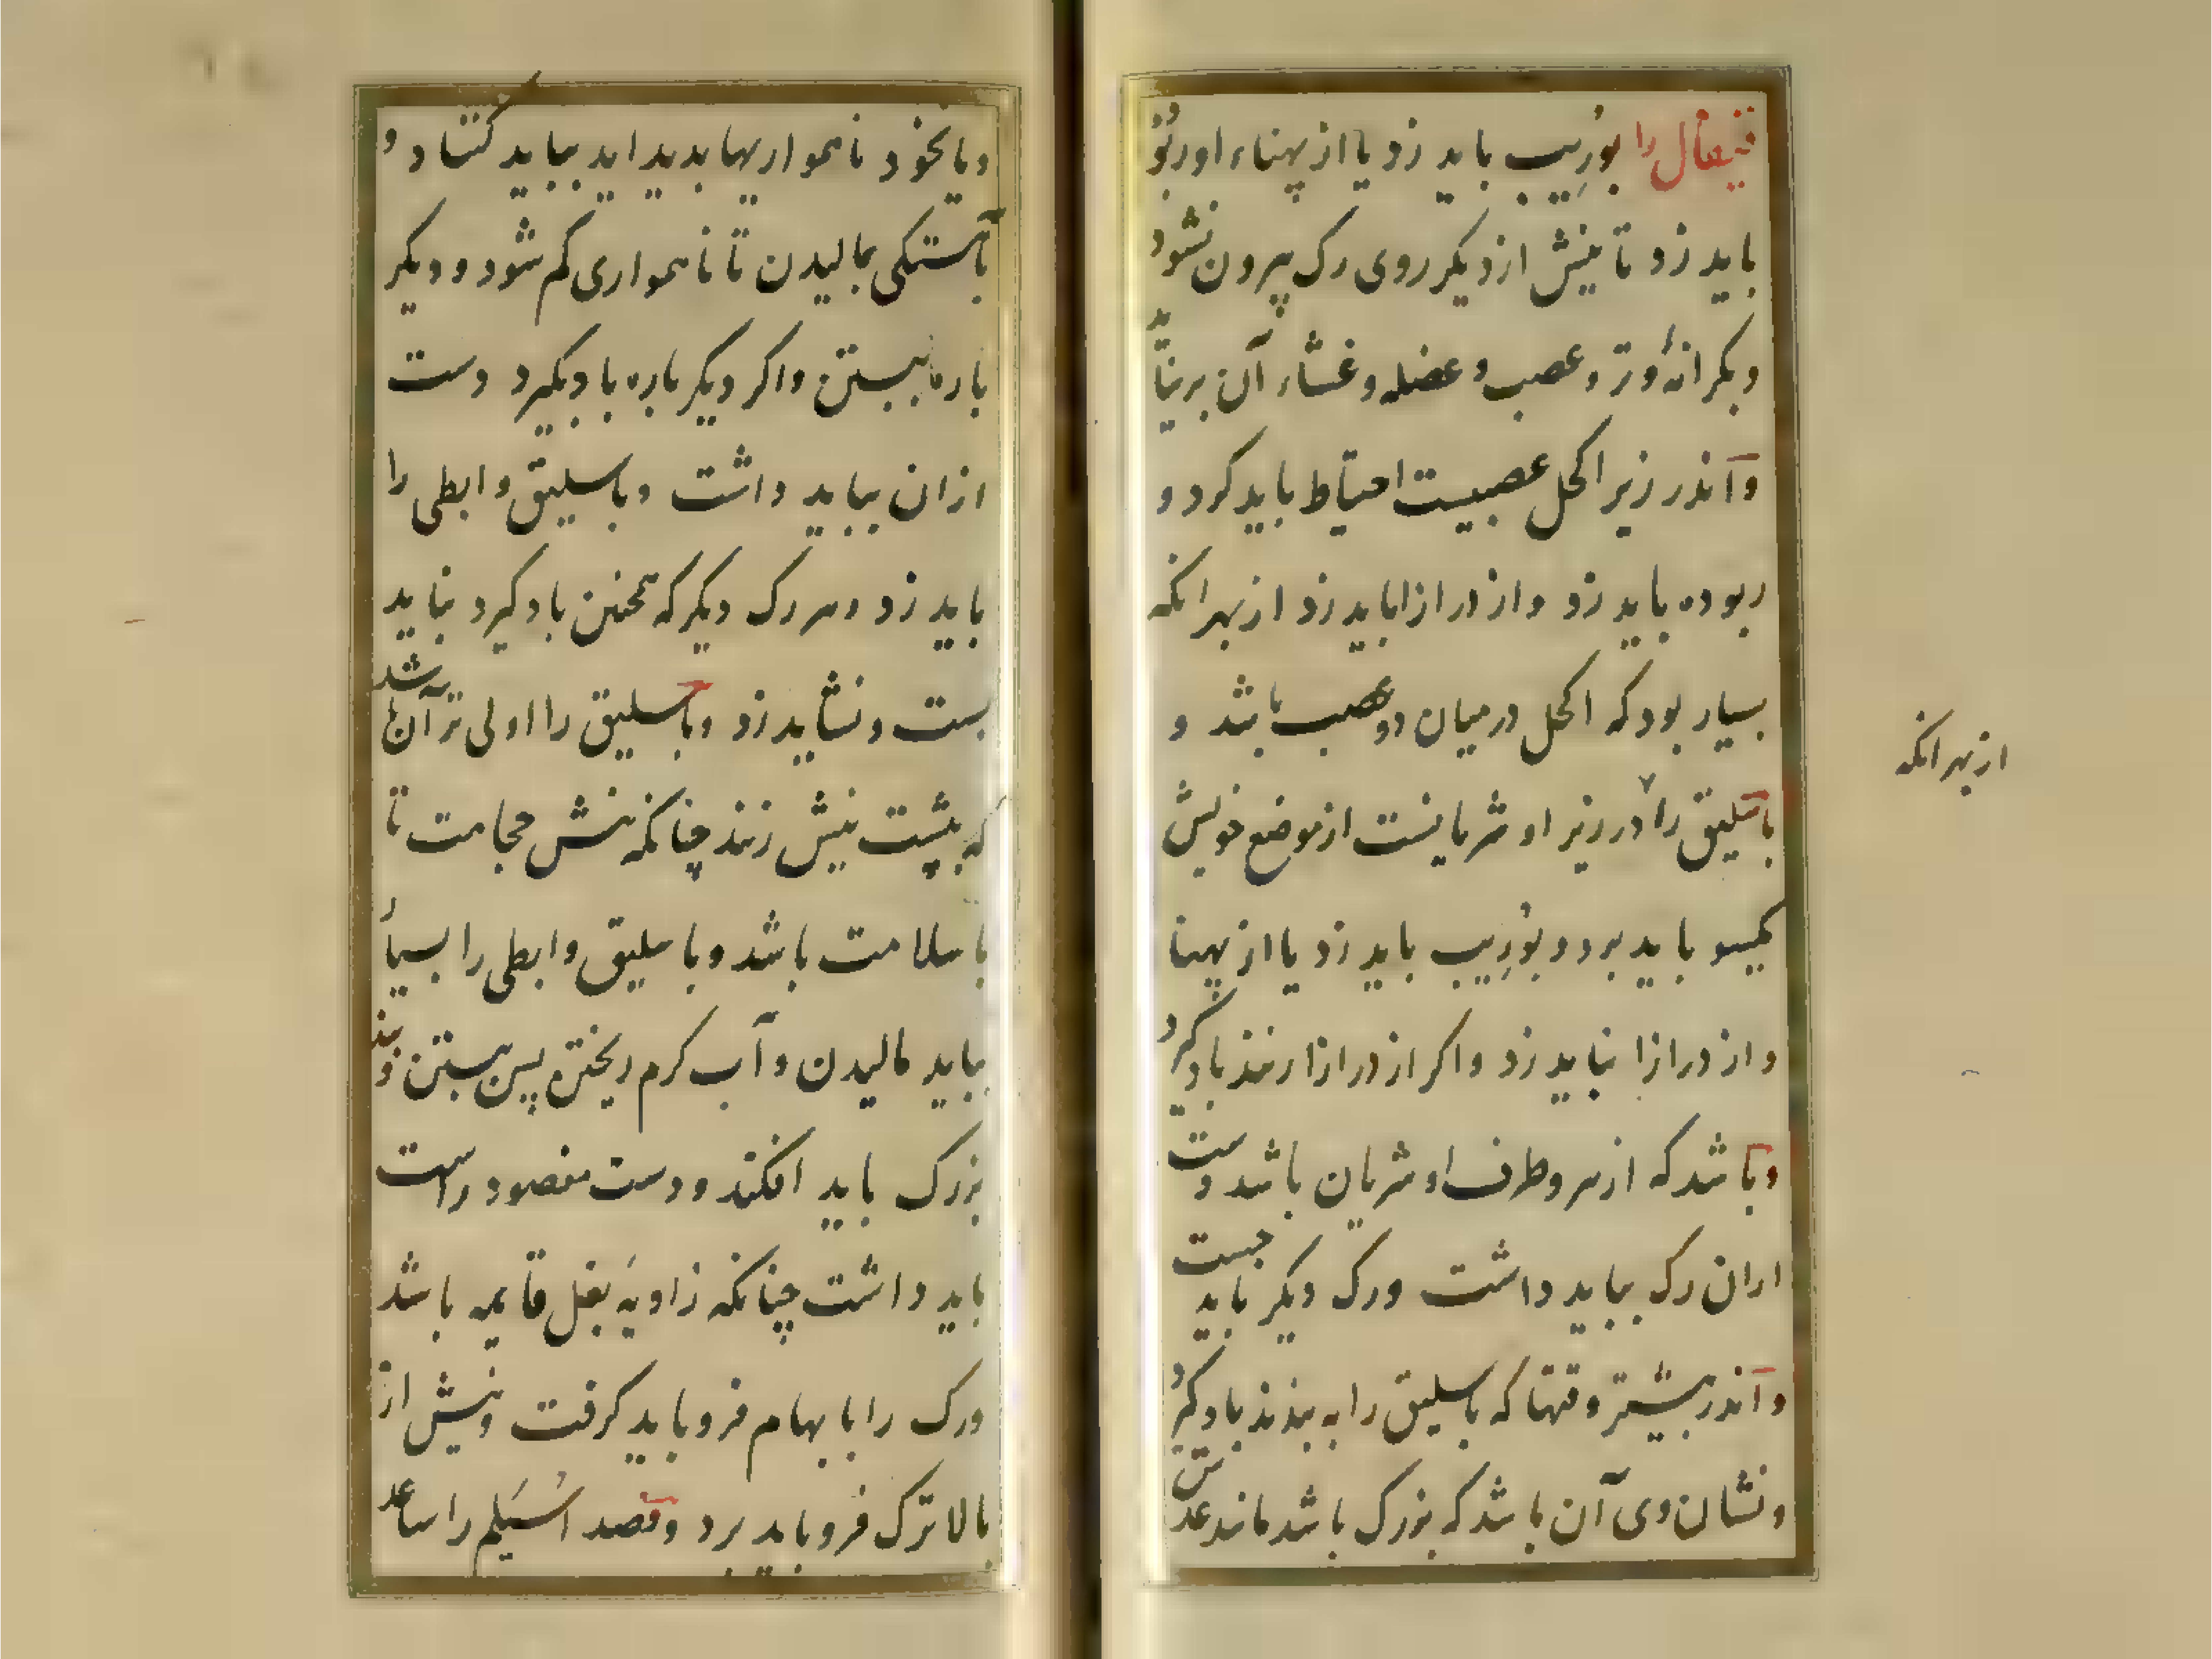 قیفال را بوُریب باید زد یا از پهناء او ربُوْ
باید زد تا نیش از دیکر روی رک بیرون نشود
وبکرانهٔ وتر و عصب و عضله و غشاء آن برنیاید
وآندر زیر اکحل عصبیست احتیاط باید کرد و
ربوده باید زد و از درازا باید زد از بهر انکه
بسیار بود که اکحل در میان دو عصب باشد و
باسلیق را در زیر او شریانیست از موضع خویش
یکسو باید برد و بوُرِیب باید زد یا از پهنا
و از درازا نباید زد و اکر از درازا زنند باد کیرد
وباشد که از هر دو طرف او شریان باشد دست
ازان رک بباید داشت ورک دیکر باید جست
وآندر بیشتر وقتها که باسلیق را به بندند باد کیرد
ونشان وی آن باشد که بزرک باشد مانند عدس
از بهر انکه
ویا نخود ناهمواریها بدید اید بباید کشاد و
بآهستکی بمالیدن تا ناهمواری کم شود و دیکر
باره ببستن واکر دیکر باره باد بکیرد دست
ازان بباید داشت وباسلیق و ابطی را
باید زد وهر رک دیکر که همچنین باد کیرد نباید
بست و نشاید زد وباسلیق را اولی تر آن باشد
که بپشت نیش زنند چنانکه نیش حجامت تا
باسلامت باشد وباسلیق وابطی را بسیار
بباید مالیدن و آب کرم ریختن پس بستن وبند
بزرک باید افکند و دست مفصود راست
باید داشت چنانکه زاویهَ بغل قایمه باشد
ورک را بابهام فرو باید کرفت ونیش از
بالاترک فرو باید برد وفصد اُسَیلم را ساعد